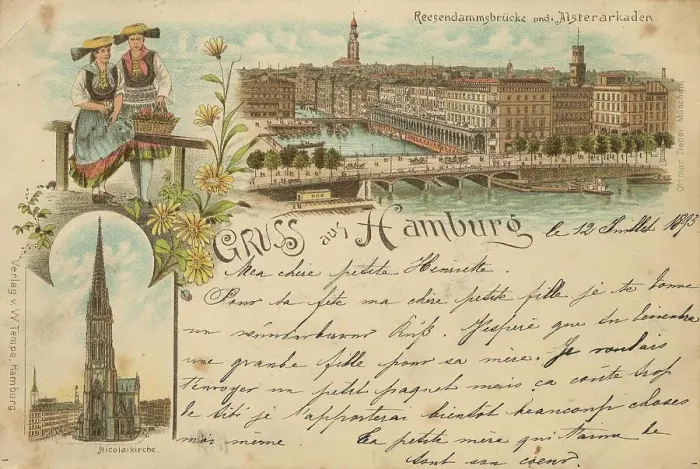 Reesendammsbrücke und. Alsterarkaden
Ottmar Zieher München
Gruss aus Hamburg
le 12 Juillet 1895
Ma chère petite Henriette
Pour ta fête ma chère petite fille je te donne
un wunderbaren Kuß. J'espère que tu
une grande fille pour sa mère. Je voulais
t'envoyer un petit paquet mais ca coûte trop
je t'apporterai bientôt beaucoup choses
moi même. Ta petite mère qui t'aime de
tout son coeur.
Nicolaikirche
Verlag v. W. Temps, Hamburg